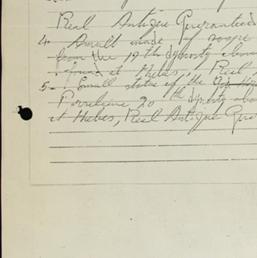 Real Antique Guaranteed
4- Small made of
from the 19th dynasty
found at Thebes, Real
5- Small statue of the
Porcelaine 20th dynasty
at Thebes, Real Antique